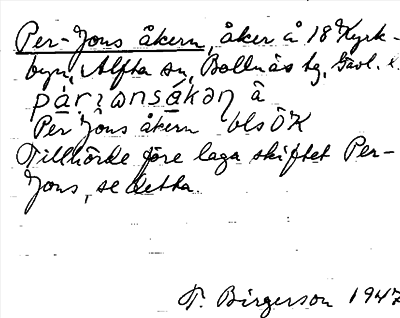 Per-Jons åkern, åker å 18 Kyrk-
byn, Alfta sn, Bollnäs tg, Gävl. l.
på̠r̩ɩɷnså̠kəη å
Per Jons åkern vbs ÖK
Tillhörde före laga skiftet Per-
Jons, se detta.
T. Birgerson 1947